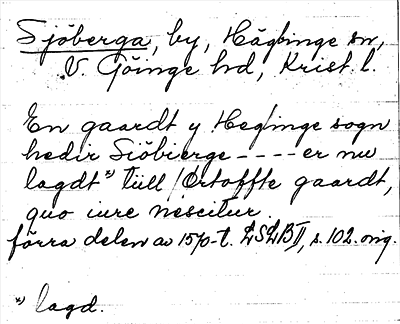 Sjöberga, by, Häglinge sn,
V. Göinge hd, Krist. l.
En gaardt y Heglinge sogn
hedir Siöbierge - - - - er nu
lagdt *) tüll Ørtoffte gaardt,
quo iure nescitur.
förra delen av 1570-t. LSLB II, s. 102. orig.
*) lagd.